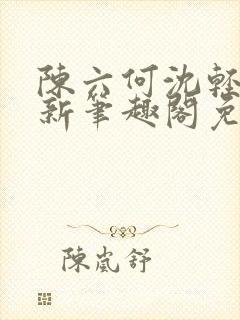 陳六何沈輕
新筆趣閣免
陳嵐舒